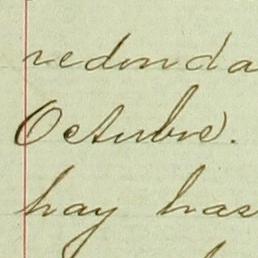 redonda
Octubre.
hay has